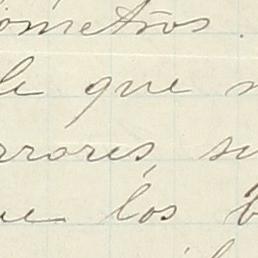 ometros.
le que
rrores, su
ue los